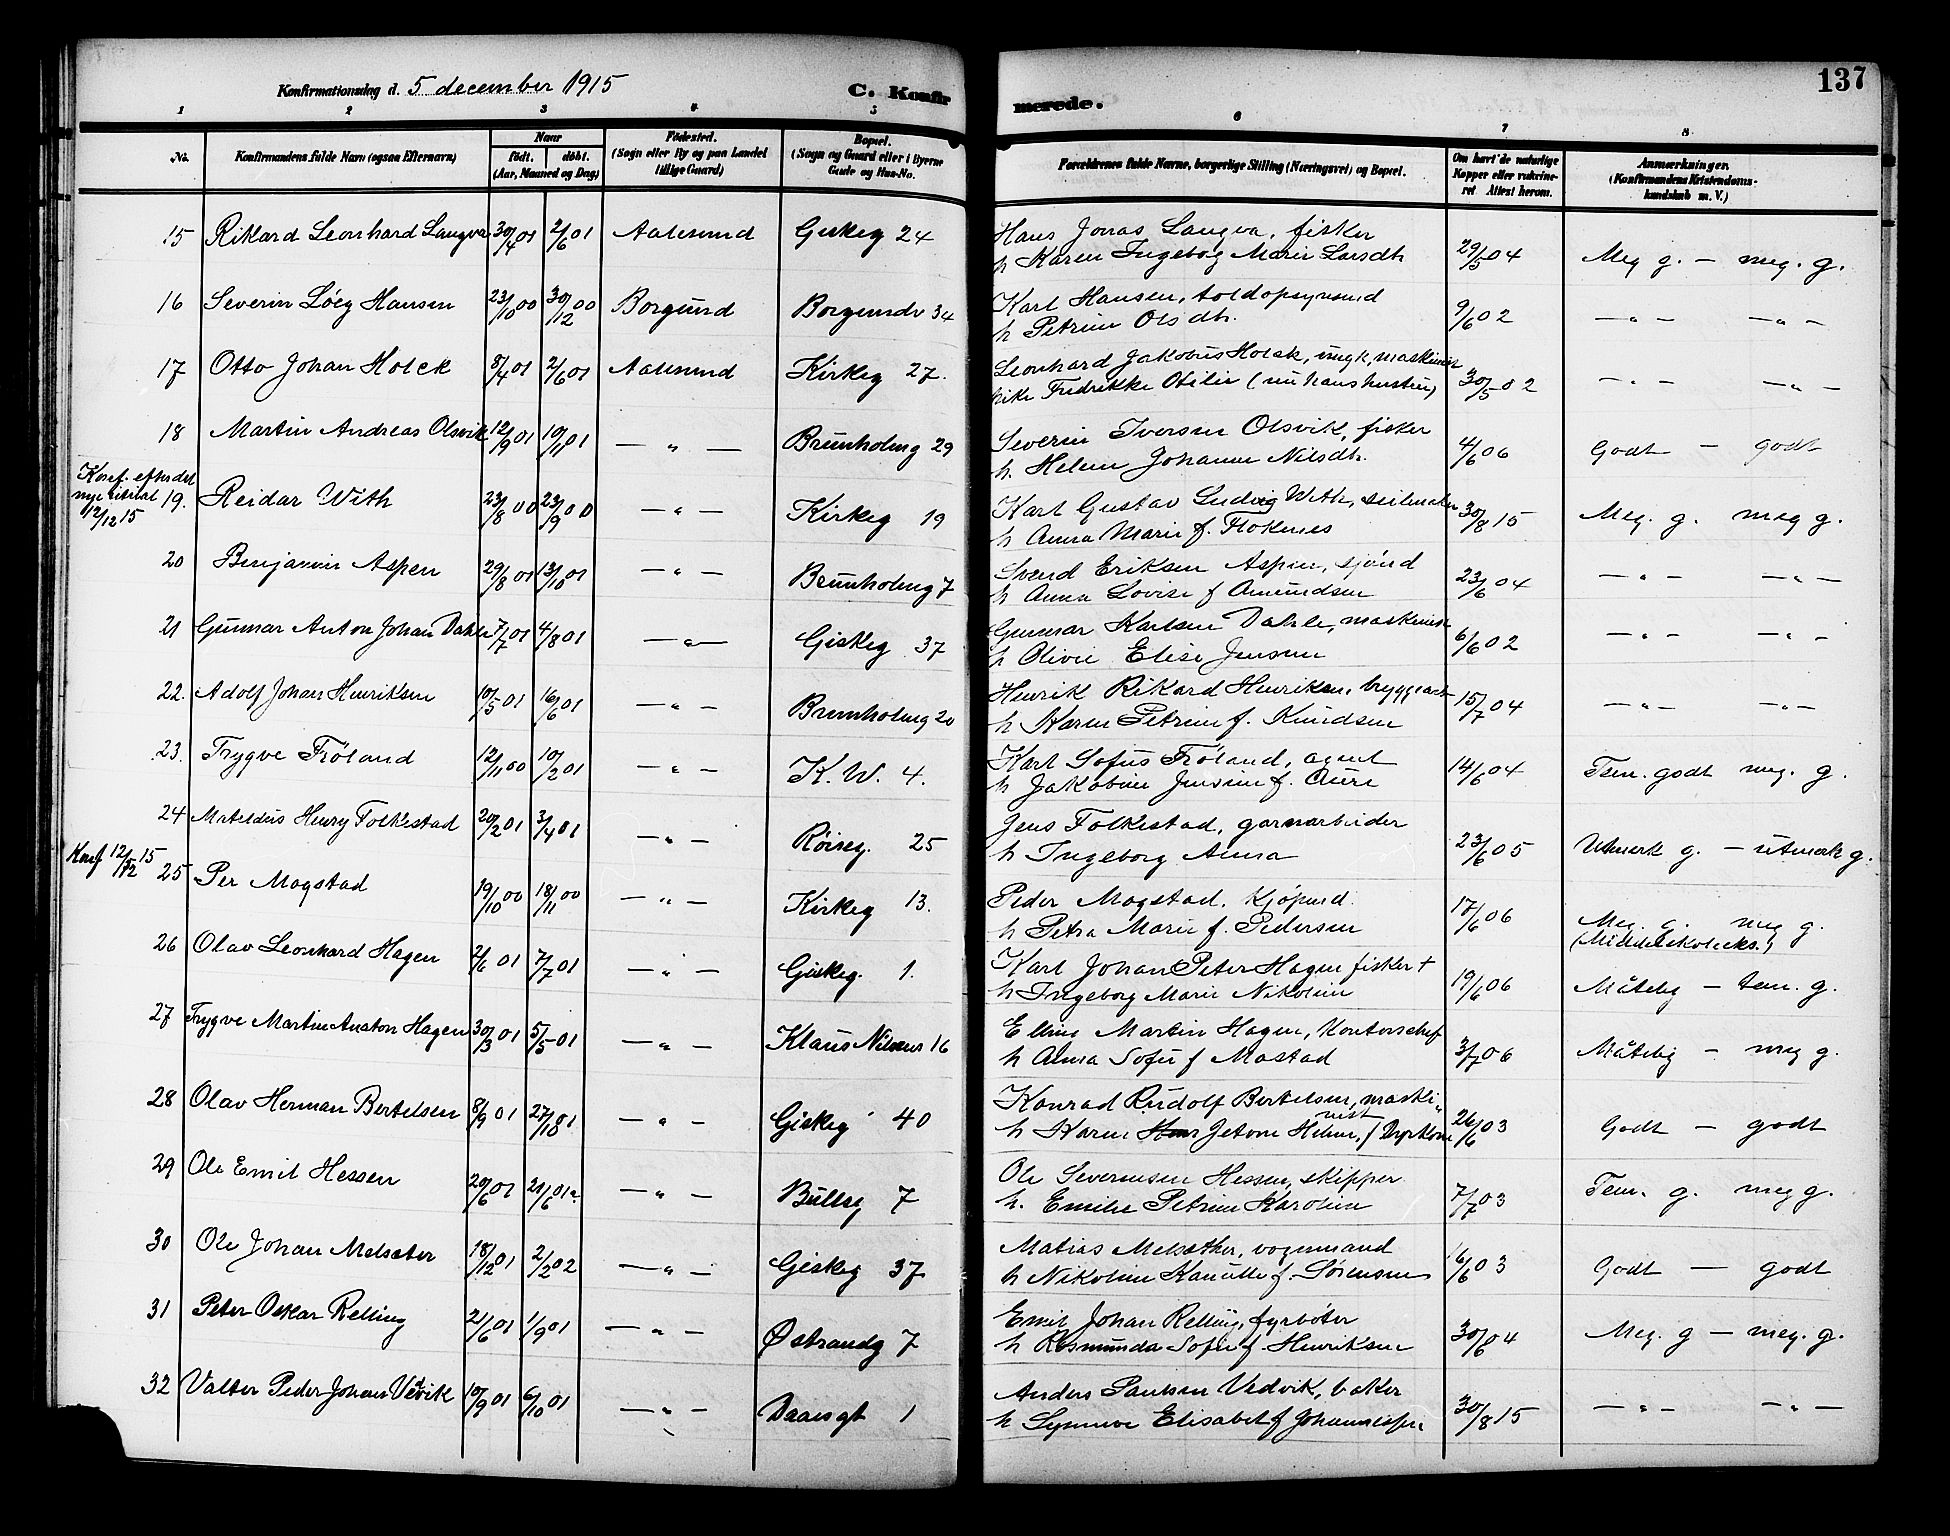 137
Konfirmationsdag d. 5 december 1915
C. Konfirmerede.
1 2 3 4 5 6 7 8
No.
Konfirmandens fulde Navn (ogsaa Efternavn)
Naar
födt. döbt.
(Aar, Maaned og Dag)
Födested.
(Sogn eller By og paa Landet tillige Gaard)
Bopæl.
(Sogn og Gaard eller i Byerne Gade og Hus-No.
Forældrenes fulde Navne, borgerlige Stilling (Næringsvei) og Bopæl.
Om havt de naturlige Kopper eller vakcineret Attest herom.
Anmærkninger.
(Konfirmandens Kristendomskundskab m. V.)
15 Rikard Leonhard Langva 30/4 01 2/6 01 Aalesund Giskeg 24 Hans Jonas Langva, fisker
h Karen Ingeborg Marie Larsdtr 29/5 04 Meg g. — meg. g.
16 Severin Lövg Hansen 23/10 00 30/12 00 Borgund Borgundv 34 Karl Hansen, toldopsynsmd
h Petrine Olsdtr. 9/6 02 — " — — " —
17 Otto Johan Holck 8/4 01 2/6 01 Aalesund Kirkeg 27. Leonhard Jakobus Holck, ungk, maskinist
pike Fredrikke Otilie (nu hans hustru) 30/5 02 — " — — " —
18 Martin Andreas Olsvik 12/9 01 10/11 01 — " — Brunholmg 29 Severin Iversen Olsvik, fisker
h. Helene Johanne Nilsdtr. 4/6 06 Godt — godt
Konf. efter det
nye ritual
12/12 15
19. Reidar With 23/8 00 23/9 00 — " — Kirkeg 19 Karl Gustav Ludvig With, seilmaker
h Anna Marie f. Flokenes 30/8 15 Meg. g. meg g.
20 Benjamin Aspen 29/8 01 13/10 01 — " — Brunholmg 7 Svend Eriksen Aspen, sjömd
h Anna Lovise f Amundsen 23/6 04 — " — — " —
21 Gunnar Anton Johan Dahle 7/7 01 4/8 01 — " — Giskeg 37 Gunnar Karlsen Dahle, maskinist
h Olivie Elise Jensen 6/6 02 — " — — " —
22. Adolf Johan Henriksen 10/5 01 16/6 01 — " — Brunholmg 20 Henrik Rikard Henriksen, bryggearb
h Karen Petrine f. Knudsen 15/7 04 — " — — " —
23. Trygve Fröland 12/11 00 10/2 01 — " — K. W. 4. Karl Sofus Fröland, agent
h Jakobine Jensine f. Aure 14/6 04 Tem. godt meg. g.
24 Mateldus Henry Folkestad 20/2 01 3/4 01 — " — Röiseg. 25 Jens Folkestad, garnarbeider
h Ingeborg Anna 23/6 05 Utmerk g. — utmerk g.
Konf 12/12 15
25 Per Mogstad 19/10 00 18/11 00 — " — Kirkeg 13. Peder Mogstad. Kjöpmd.
h Petra Marie f. Pedersen 17/6 06 Meg. g. meg g.
(Middelskoleeks.)
26 Olav Leonhard Hagen 2/6 01 7/7 01 — " — Giskeg. 1. Karl Johan Peter Hagen fisker +
h Ingeborg Marie Nikoline 19/6 06 Måtelig — tem. g.
27 Trygve Martin Anston Hagen 30/3 01 5/5 01 — " — Klaus Nilsens 16 Elling Martin Hagen, Kontorschef
h Anna Sofie f Mostad 3/7 06 Måtelig — meg g.
28 Olav Herman Bertelsen 8/9 01 27/10 01 — " — Giskeg 40 Konrad Rudolf Bertelsen, maskinist
h Karen Jetone Helene, f Dyrkorn 26/6 03 Godt — godt
29 Ole Emil Hessen 20/6 01 — " — Bullsg 7 Ole Severinsen Hessen, skipper
h. Emilie Petrine Karoline 7/7 03 Tem. g. meg g.
30 Ole Johan Melsæter 18/12 01 2/2 02 — " — Giskeg 37 Matias Melsæther, vognmand
h Nikoline Kanutte f. Sörensen 16/6 03 Godt — godt
31 Peter Oskar Relling 21/6 01 1/9 01 — " — Østrandg 7 Emil Johan Relling, fyrböter
h Rosmunda Sofie f. Henriksen 30/6 04 Meg. g — meg. g.
32 Valter Peder Johan Vedvik 10/9 01 6/10 01 — " — Daaesgt 1 Anders Paulsen Vedvik, baker
h Synnøve Elisabet f Johannesen 30/8 15 — " — — " —